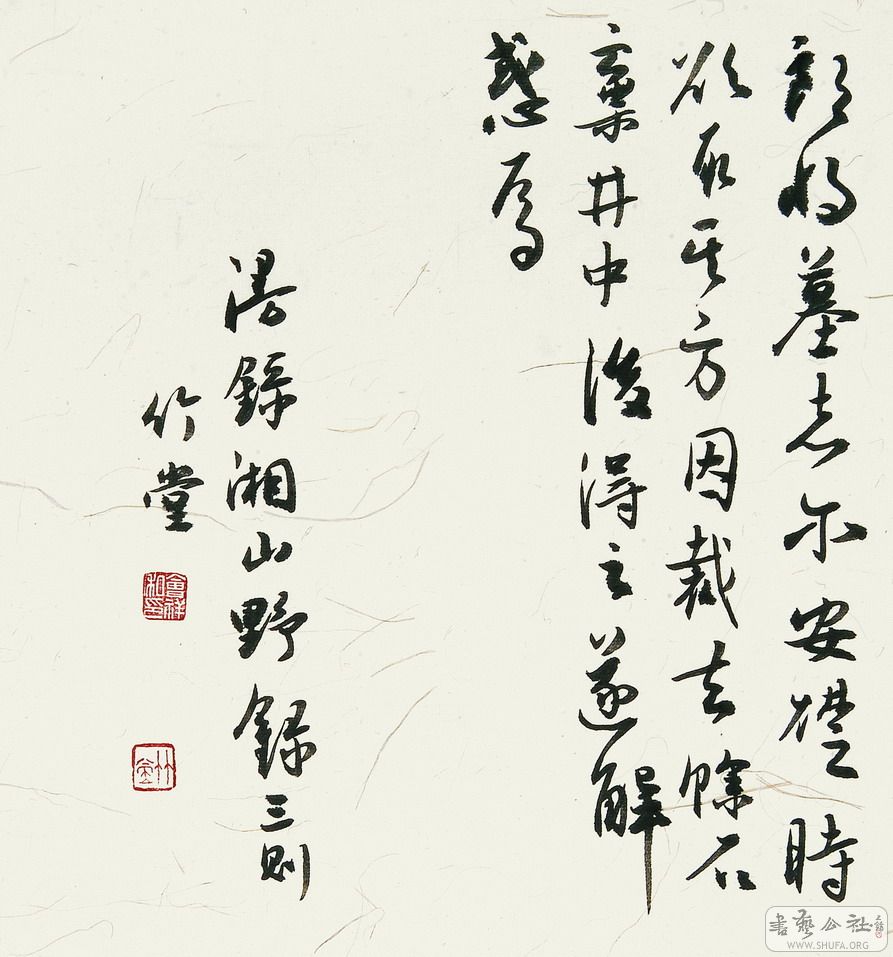 郎将墓志尔安礎時
欲取其方因裁去餘石
棄井中後得之遂解
惑焉
漫錄湘山野錄三則
竹堂
書藝公社
WWW.SHUFA.ORG